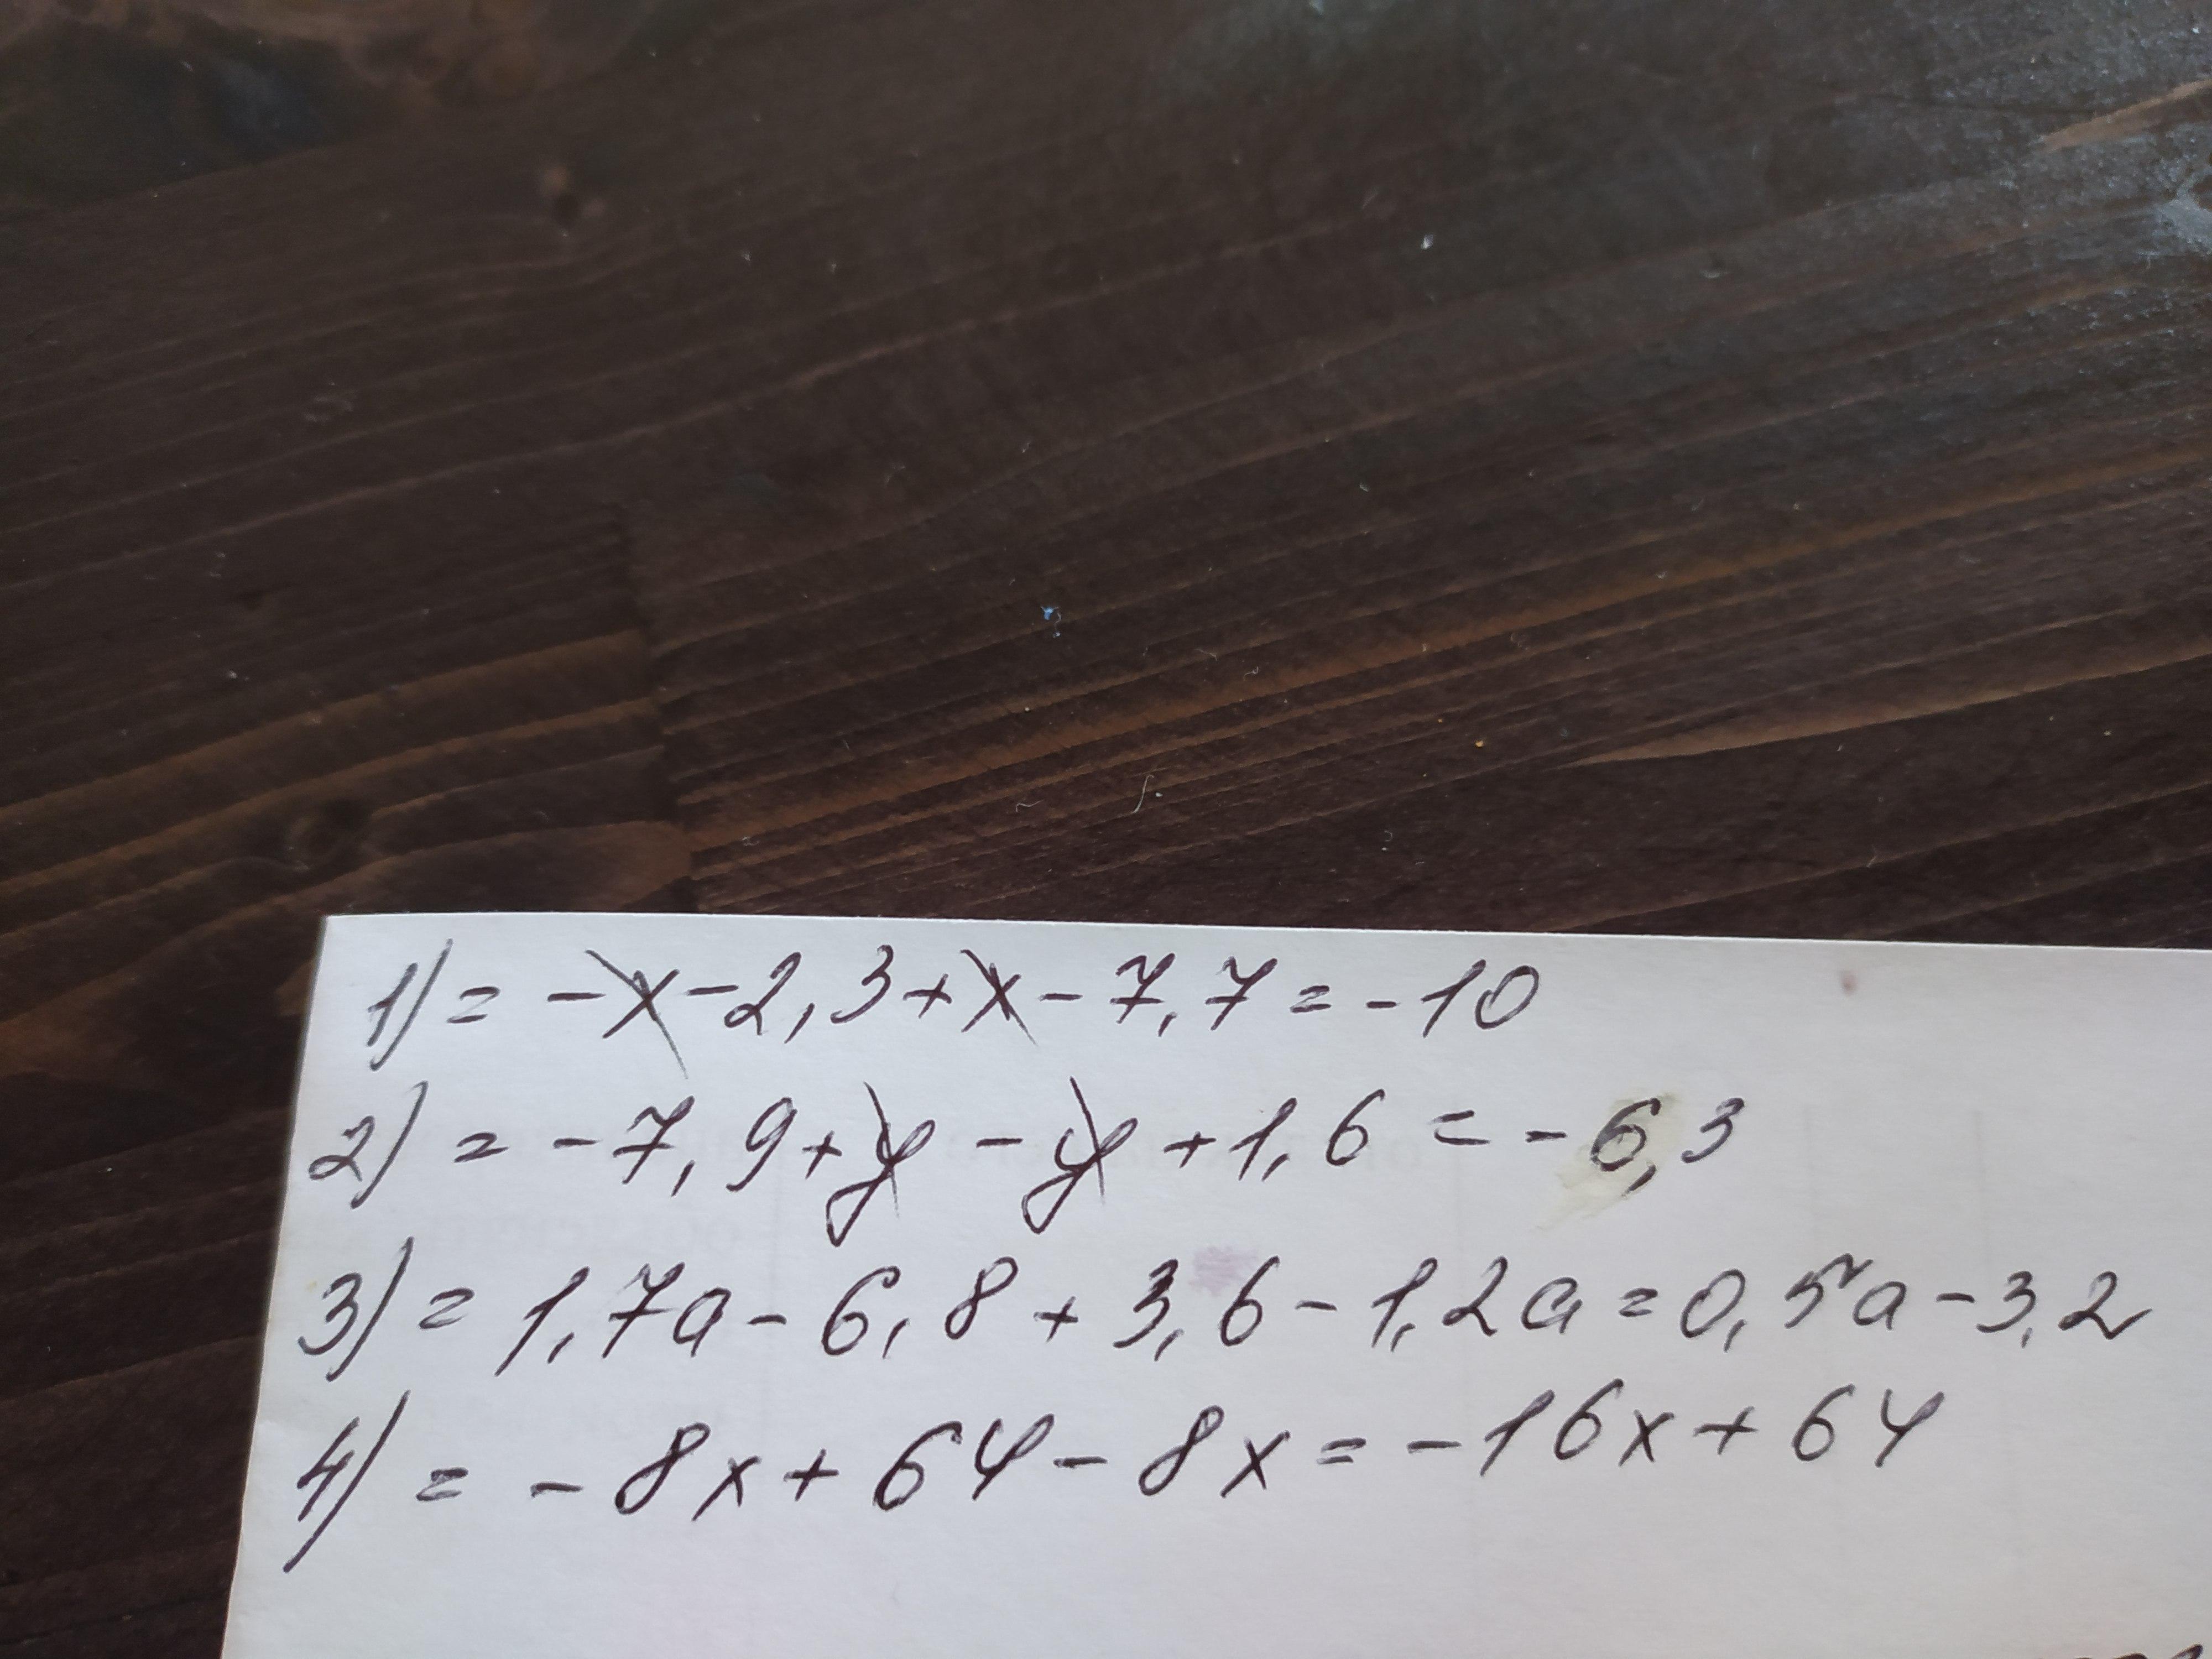 1) = -x-2,3+x-7,7=-10
2) = -7,9+y-y+1,6=-6,3
3) = 1,7a-6,8+3,6-1,2a=0,5a-3,2
4) = -8x+64-8x=-16x+64